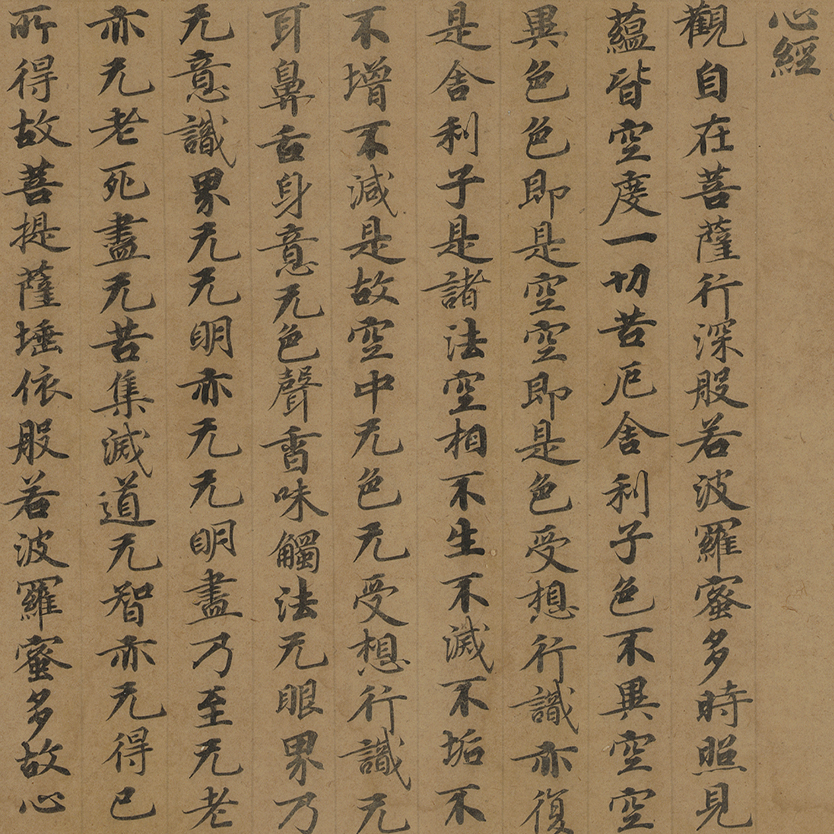 心經
觀自在菩薩行深般若波羅蜜多時照見
蘊皆空度一切苦厄舍利子色不異空空
異色色即是空空即是色受想行識亦復
是舍利子是諸法空相不生不滅不垢不
不增不減是故空中无色无受想行識无
耳鼻舌身意无色聲香味觸法无眼界乃
无意識界无无明亦无无明盡乃至无老
亦无老死盡无苦集滅道无智亦无得已
所得故菩提薩埵依般若波羅蜜多故心